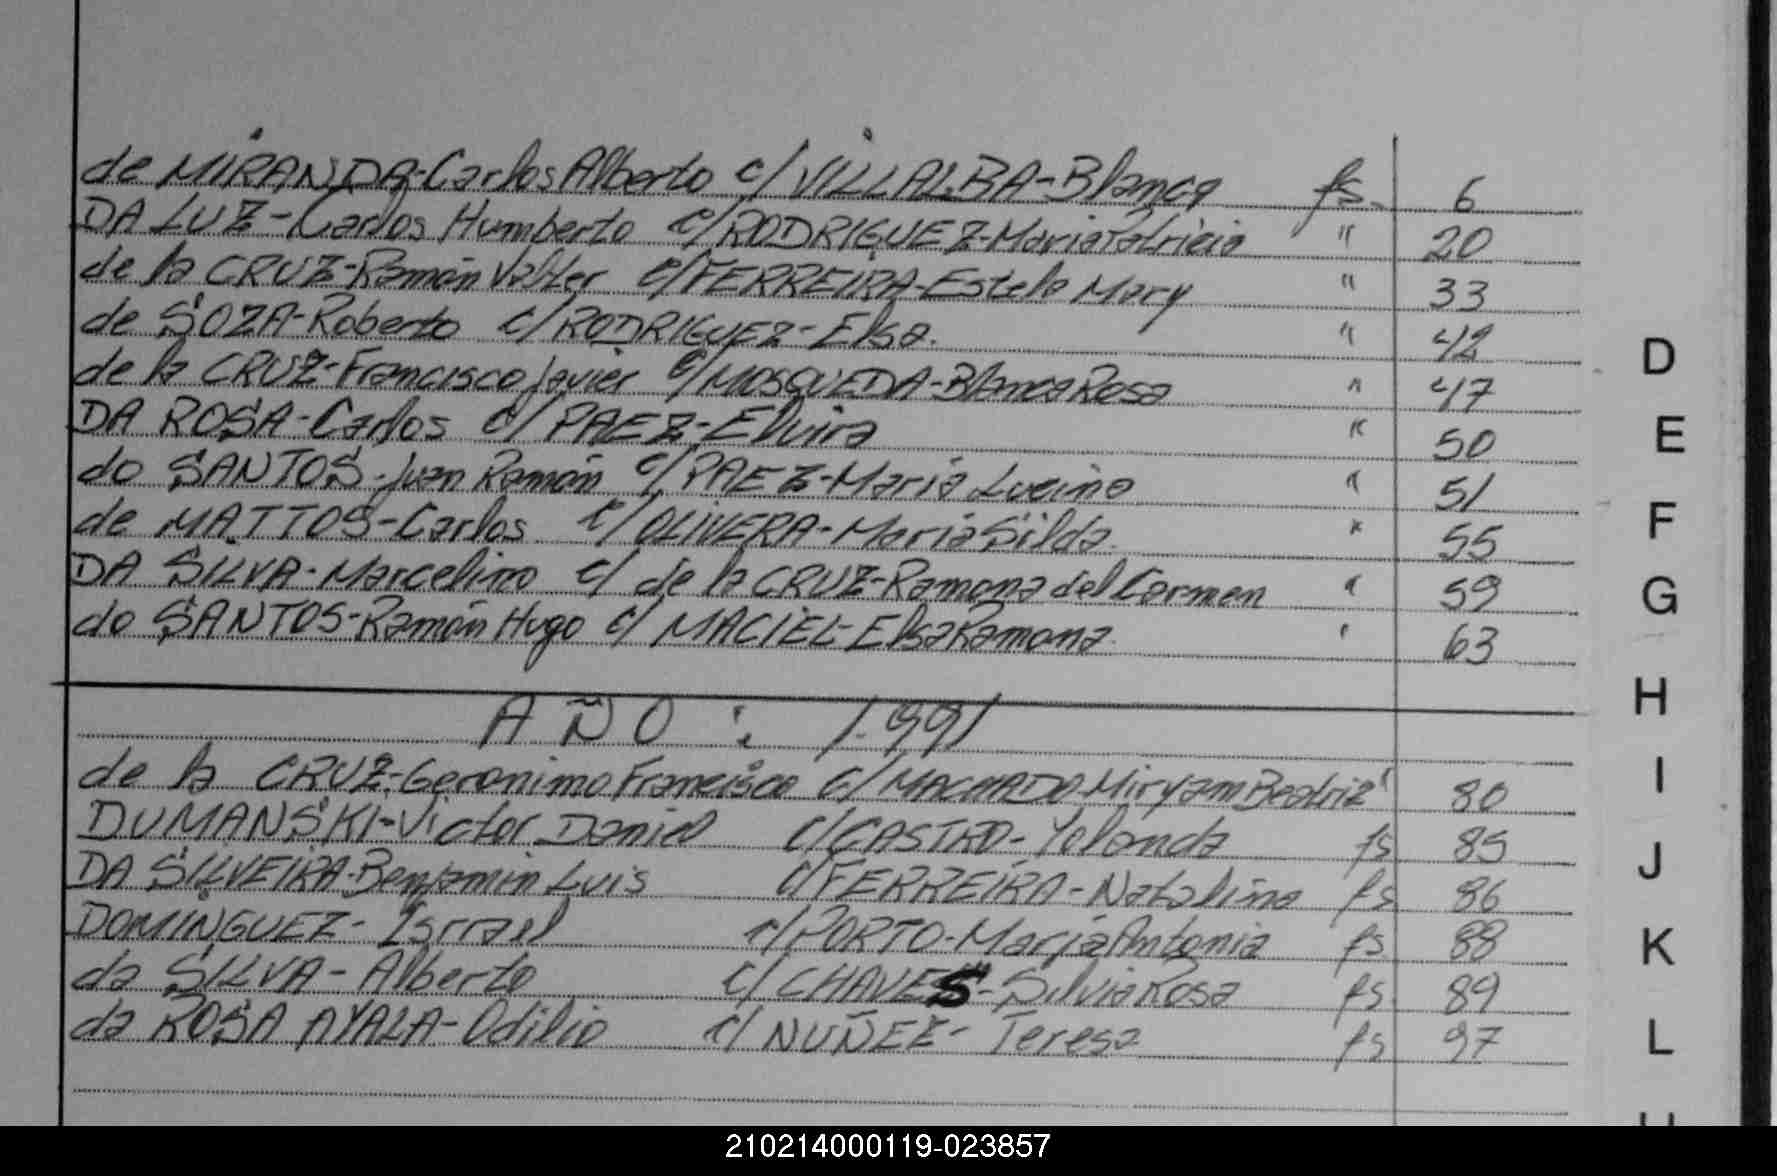 de MIRANDA-Carlos Alberto c/ VILLALBA-Blanca fs. 6
DA LUZ-Carlos Humberto c/ RODRIGUEZ-Maria Patricia " 20
de la CRUZ-Ramón Valter c/ FERREIRA-Estela Mary " 33
de SOZA-Roberto c/ RODRIGUEZ-Elsa. " 42
de la CRUZ-Francisco Javier c/ MOSQUEDA-Blanca Rosa " 47
DA ROSA-Carlos c/ PAEZ-Elvira " 50
do SANTOS-Juan Ramón c/ PAEZ-Maria Lucina " 51
de MATTOS-Carlos c/ OLIVERA-Maria Gilda. " 55
DA SILVA-Marcelino c/ de la CRUZ-Ramona del Carmen " 59
do SANTOS-Ramón Hugo c/ MACIEL-Elsa Ramona. " 63
AÑO: 1.991
de la CRUZ-Geronimo Francisco c/ MACHADO-Miryam Beatriz 80
DUMANSKI-Victor Daniel c/ CASTRO-Yolanda fs 85
DA SILVEIRA-Benjamin Luis c/ FERREIRA-Natalina fs 86
DOMINGUEZ-Israel c/ PORTO-Maria Antonia fs 88
da SILVA-Alberto c/ CHAVES-Silvia Rosa fs. 89
da ROSA AYALA-Odilio c/ NUÑEZ-Teresa fs 97
D
E
F
G
H
I
J
K
L
210214000119-023857